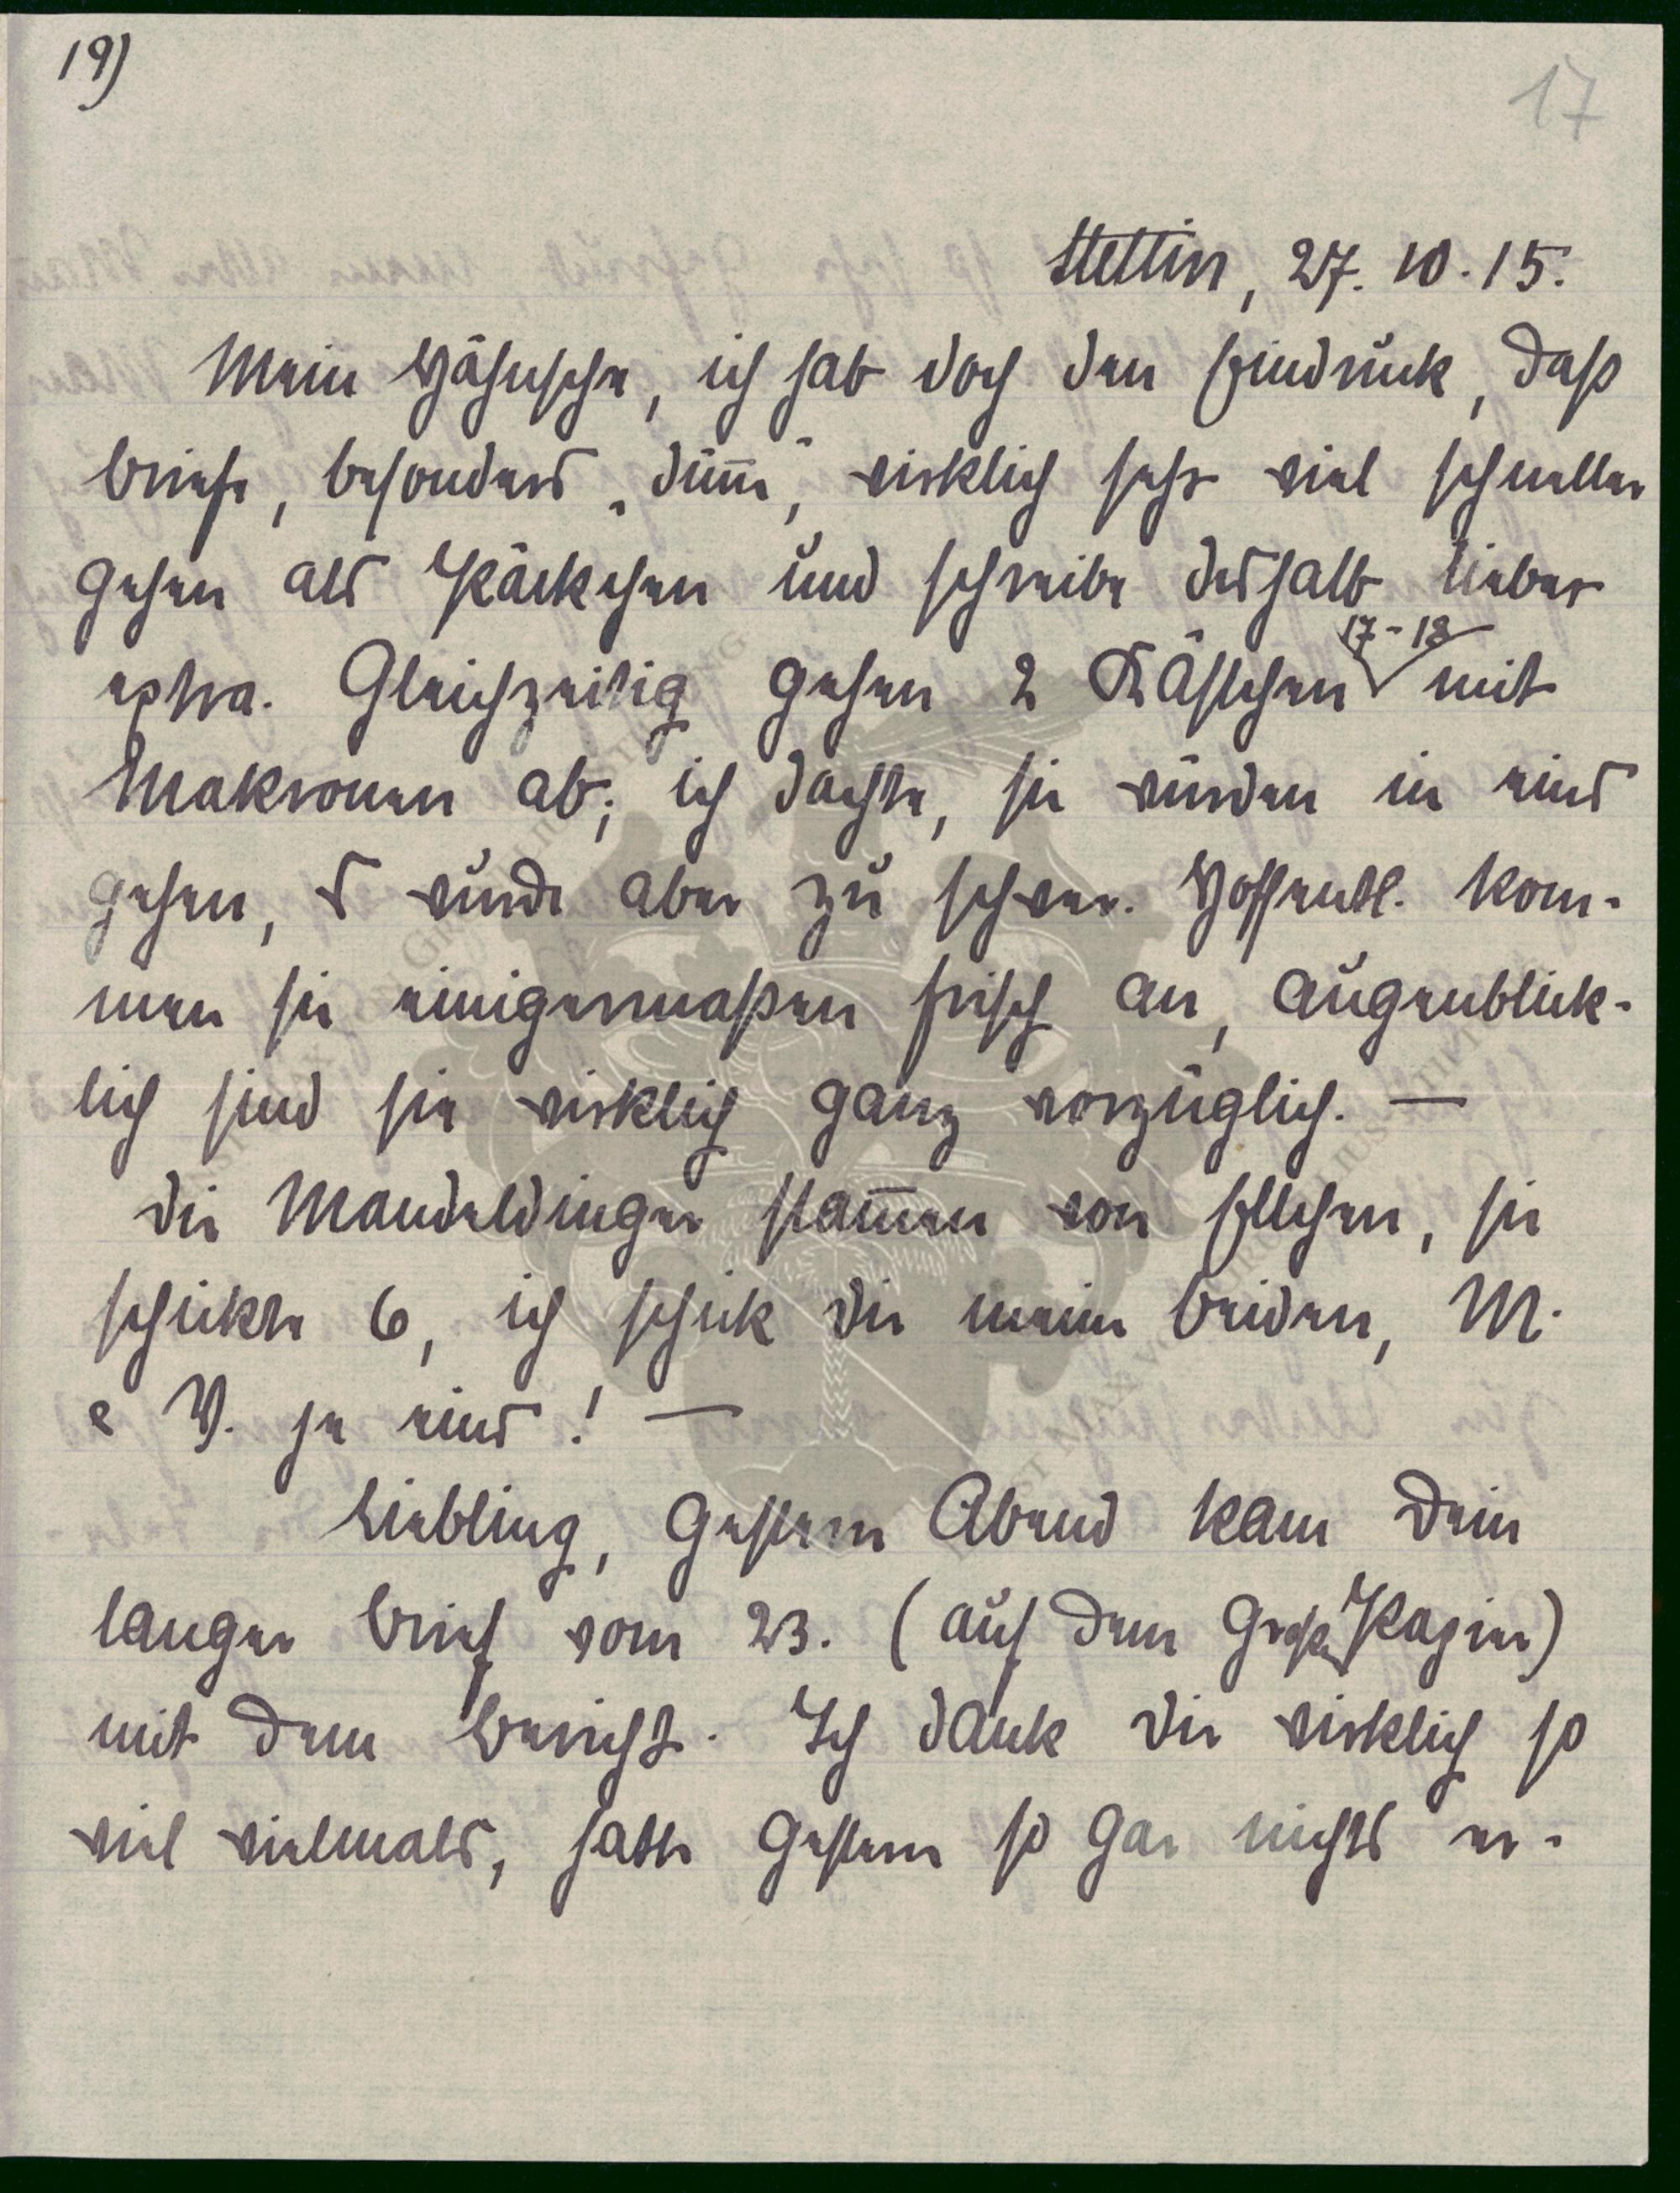 19)
17
Stettin, 27. 10. 15.
Mein Hähnsche, ich hab doch den Eindruck, daß
Briefe, besonders „dünne", wirklich sehr viel schneller
gehen als Päckchen und schreibe deshalb lieber
extra. Gleichzeitig gehen 2 Kästchen 17-18 mit
Makronen ab; ich dachte, sie würden in eins
gehen, 's würde aber zu schwer. Hoffentl. kom-
men sie einigermaßen frisch an, augenblick-
lich sind sie wirklich ganz vorzüglich. —
Die Mandeldinger stam̄en von Ellchen, sie
schickte 6, ich schick Dir meine beiden, M.
& V. je eins! —
Liebling, gestern Abend kam Dein
langer Brief vom 23. (auf dem große Papier)
mit dem Bericht. Ich dank Dir wirklich so
viel vielmals, hatte gestern so gar nichts er-